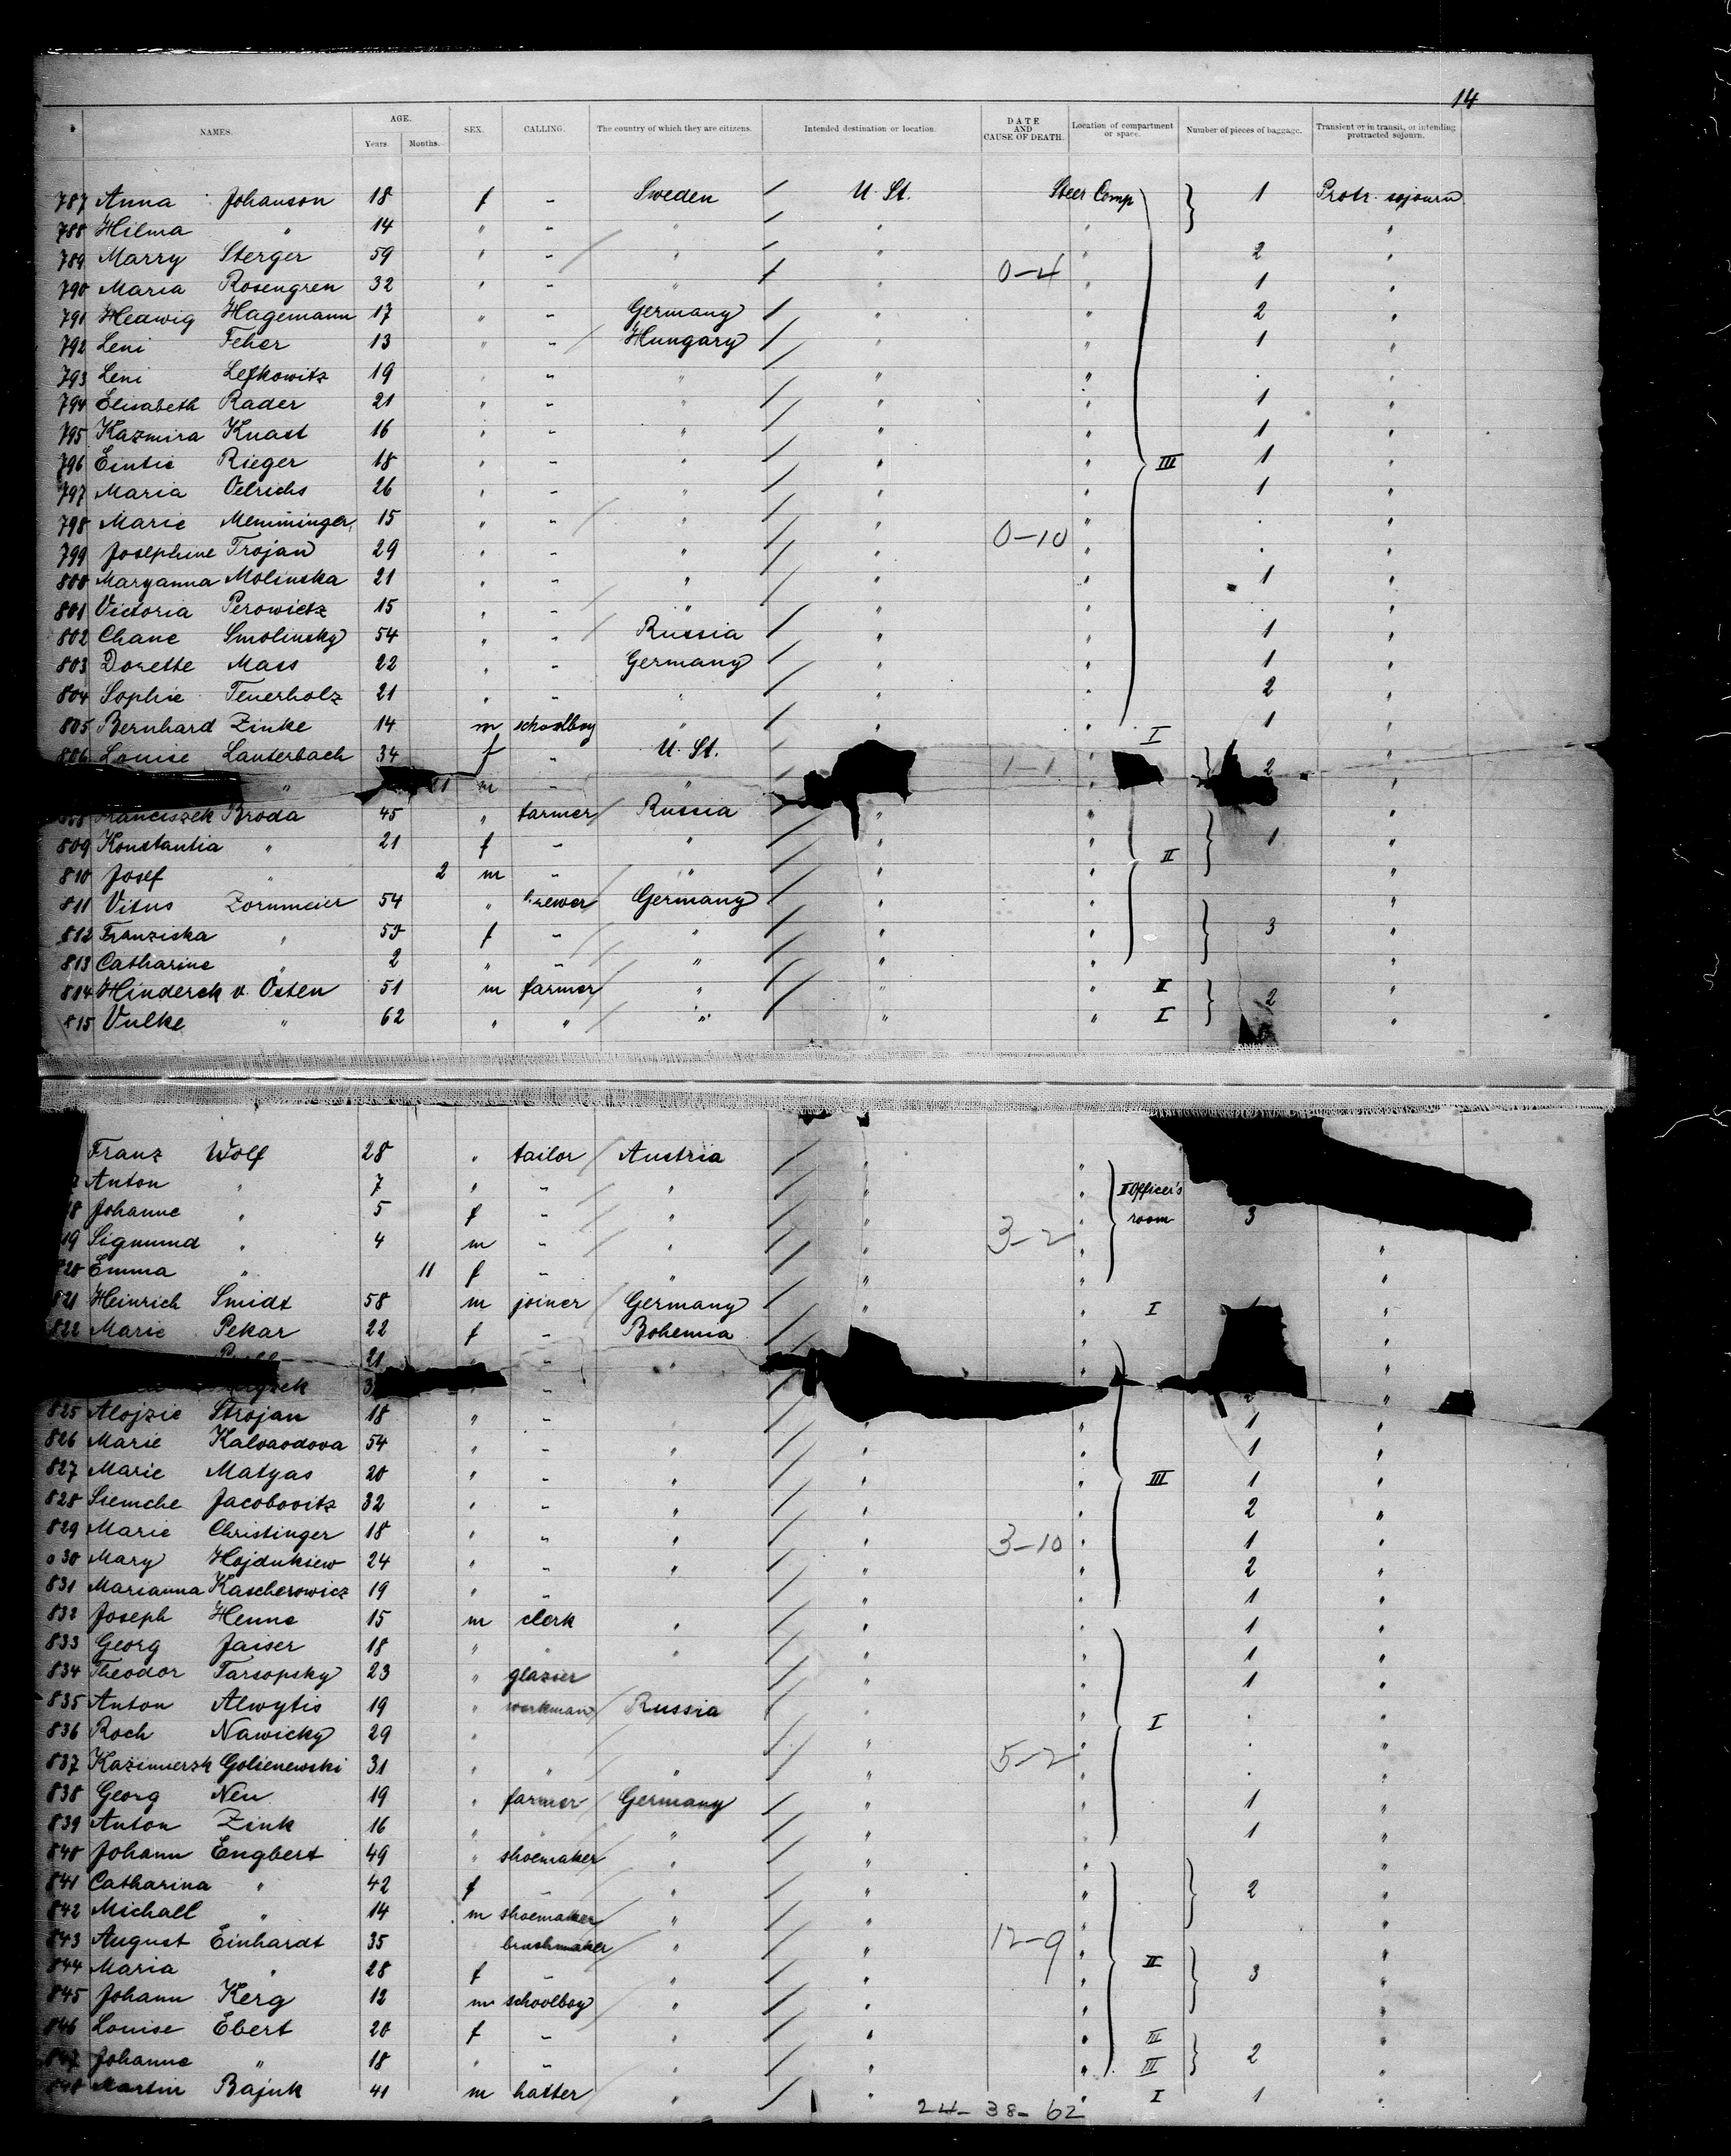 14
NAMES. AGE. Years. Months. SEX. CALLING. The country of which they are citizens. Intended destination or location. DATE AND CAUSE OF DEATH. Location of compartment or space. Number of pieces of baggage. Transient or in transit, or intending protracted sojourn.
787 Anna Johanson 18 f - Sweden / U. St. Steer Comp 1 Protr. sojourn
788 Hilma " 14 " - " / " " "
789 Marry Sterger 59 " - " / " " 2 "
790 Maria Rosengren 32 " - " / " 0-4 " 1 "
791 Hedwig Hagemann 17 " - Germany / " " 2 "
792 Leni Feher 13 " - Hungary / " " 1 "
793 Leni Lefkowitz 19 " - " / " " . "
794 Elisabeth Rader 21 " - " / " " 1 "
795 Kazmira Knast 16 " - " / " " 1 "
796 Rieger 18 " - " / " " III 1 "
797 Maria Oelrichs 26 " - " / " " 1 "
798 Marie Memminger 15 " - " / " " . "
799 Josephine Trojan 29 " - " / " 0-10 " . "
800 Maryanna Molinska 21 " - " / " " 1 "
801 Victoria Perowictz 15 " - " / " " . "
802 Chane Smolinsky 54 " - Russia / " " 1 "
803 Dorette Mass 22 " - Germany / " " 1 "
804 Sophie Feuerholz 21 " - " / " " 2 "
805 Bernhard Zinke 14 m schoolboy " / " " I 1 "
806 Louise Lauterbach 34 f - U. St. / 1-1 " 2 "
" 11 m - " "
Franciszek Broda 45 " farmer Russia / " " "
809 Konstantia " 21 f - " / " " II 1 "
810 Josef " 2 m - " / " " "
811 Vitus Zornmeier 54 " brewer Germany / " " "
812 Franziska " f - " / " " 3 "
813 Catharine " 2 " - " / " " "
814 Hinderek v. Osten 51 m farmer " / " " II 2 "
815 Vulke " 62 " " " / " " I "
Franz Wolf 28 " tailor Austria / " "
Anton " 7 " - " / " " II Officer's
8 Johanne " 5 f - " / " " room 3 "
19 Sigmund " 4 m - " / " 3-2 " "
820 Emma " 11 f - " / " " "
821 Heinrich Smidt 58 m joiner Germany / " " I "
822 Marie Pekar 22 f - Bohemia / " "
21 - " "
3 - 2 "
825 Alojzie Strojan 18 " - / " " 1 "
826 Marie Kalvaodova 54 " - " / " " 1 "
827 Marie Matyas 20 " - " / " " III 1 "
828 Siemche Jacobovitz 32 " - " / " " 2 "
829 Marie Christinger 18 " - " / " 3-10 " 1 "
830 Mary Hojdukiew 24 " - " / " " 2 "
831 Marianna Kascherowicz 19 " - / " " 1 "
832 Joseph Henne 15 m clerk " / " " 1 "
833 Georg Jaiser 18 " " " / " " 1 "
834 Theodor Tarsopsky 23 " glazier / " " 1 "
835 Anton Alwytis 19 " workman Russia / " " . "
836 Roch Nawicky 29 " / " " I . "
837 Kazimierzk Golienewski 31 " " " / " 5-2 " . "
838 Georg Neu 19 " farmer Germany / " " 1 "
839 Anton Zink 16 " " " / " " 1 "
840 Johann Engbert 49 " shoemaker " / " " "
841 Catharina " 42 f - " / " " 2 "
842 Michall " 14 m shoemaker " / " " "
843 August Einhardt 35 brushmaker " / " 12-9 " "
844 Maria " 28 f - " / " " II 3 "
845 Johann Kerg 12 m schoolboy " / " " "
846 Louise Ebert 20 f - " / " " III "
847 Johanne " 18 " - " / " " III 2 "
848 Martin Bajuk 41 m hatter " / " " I 1 "
24- 38- 62